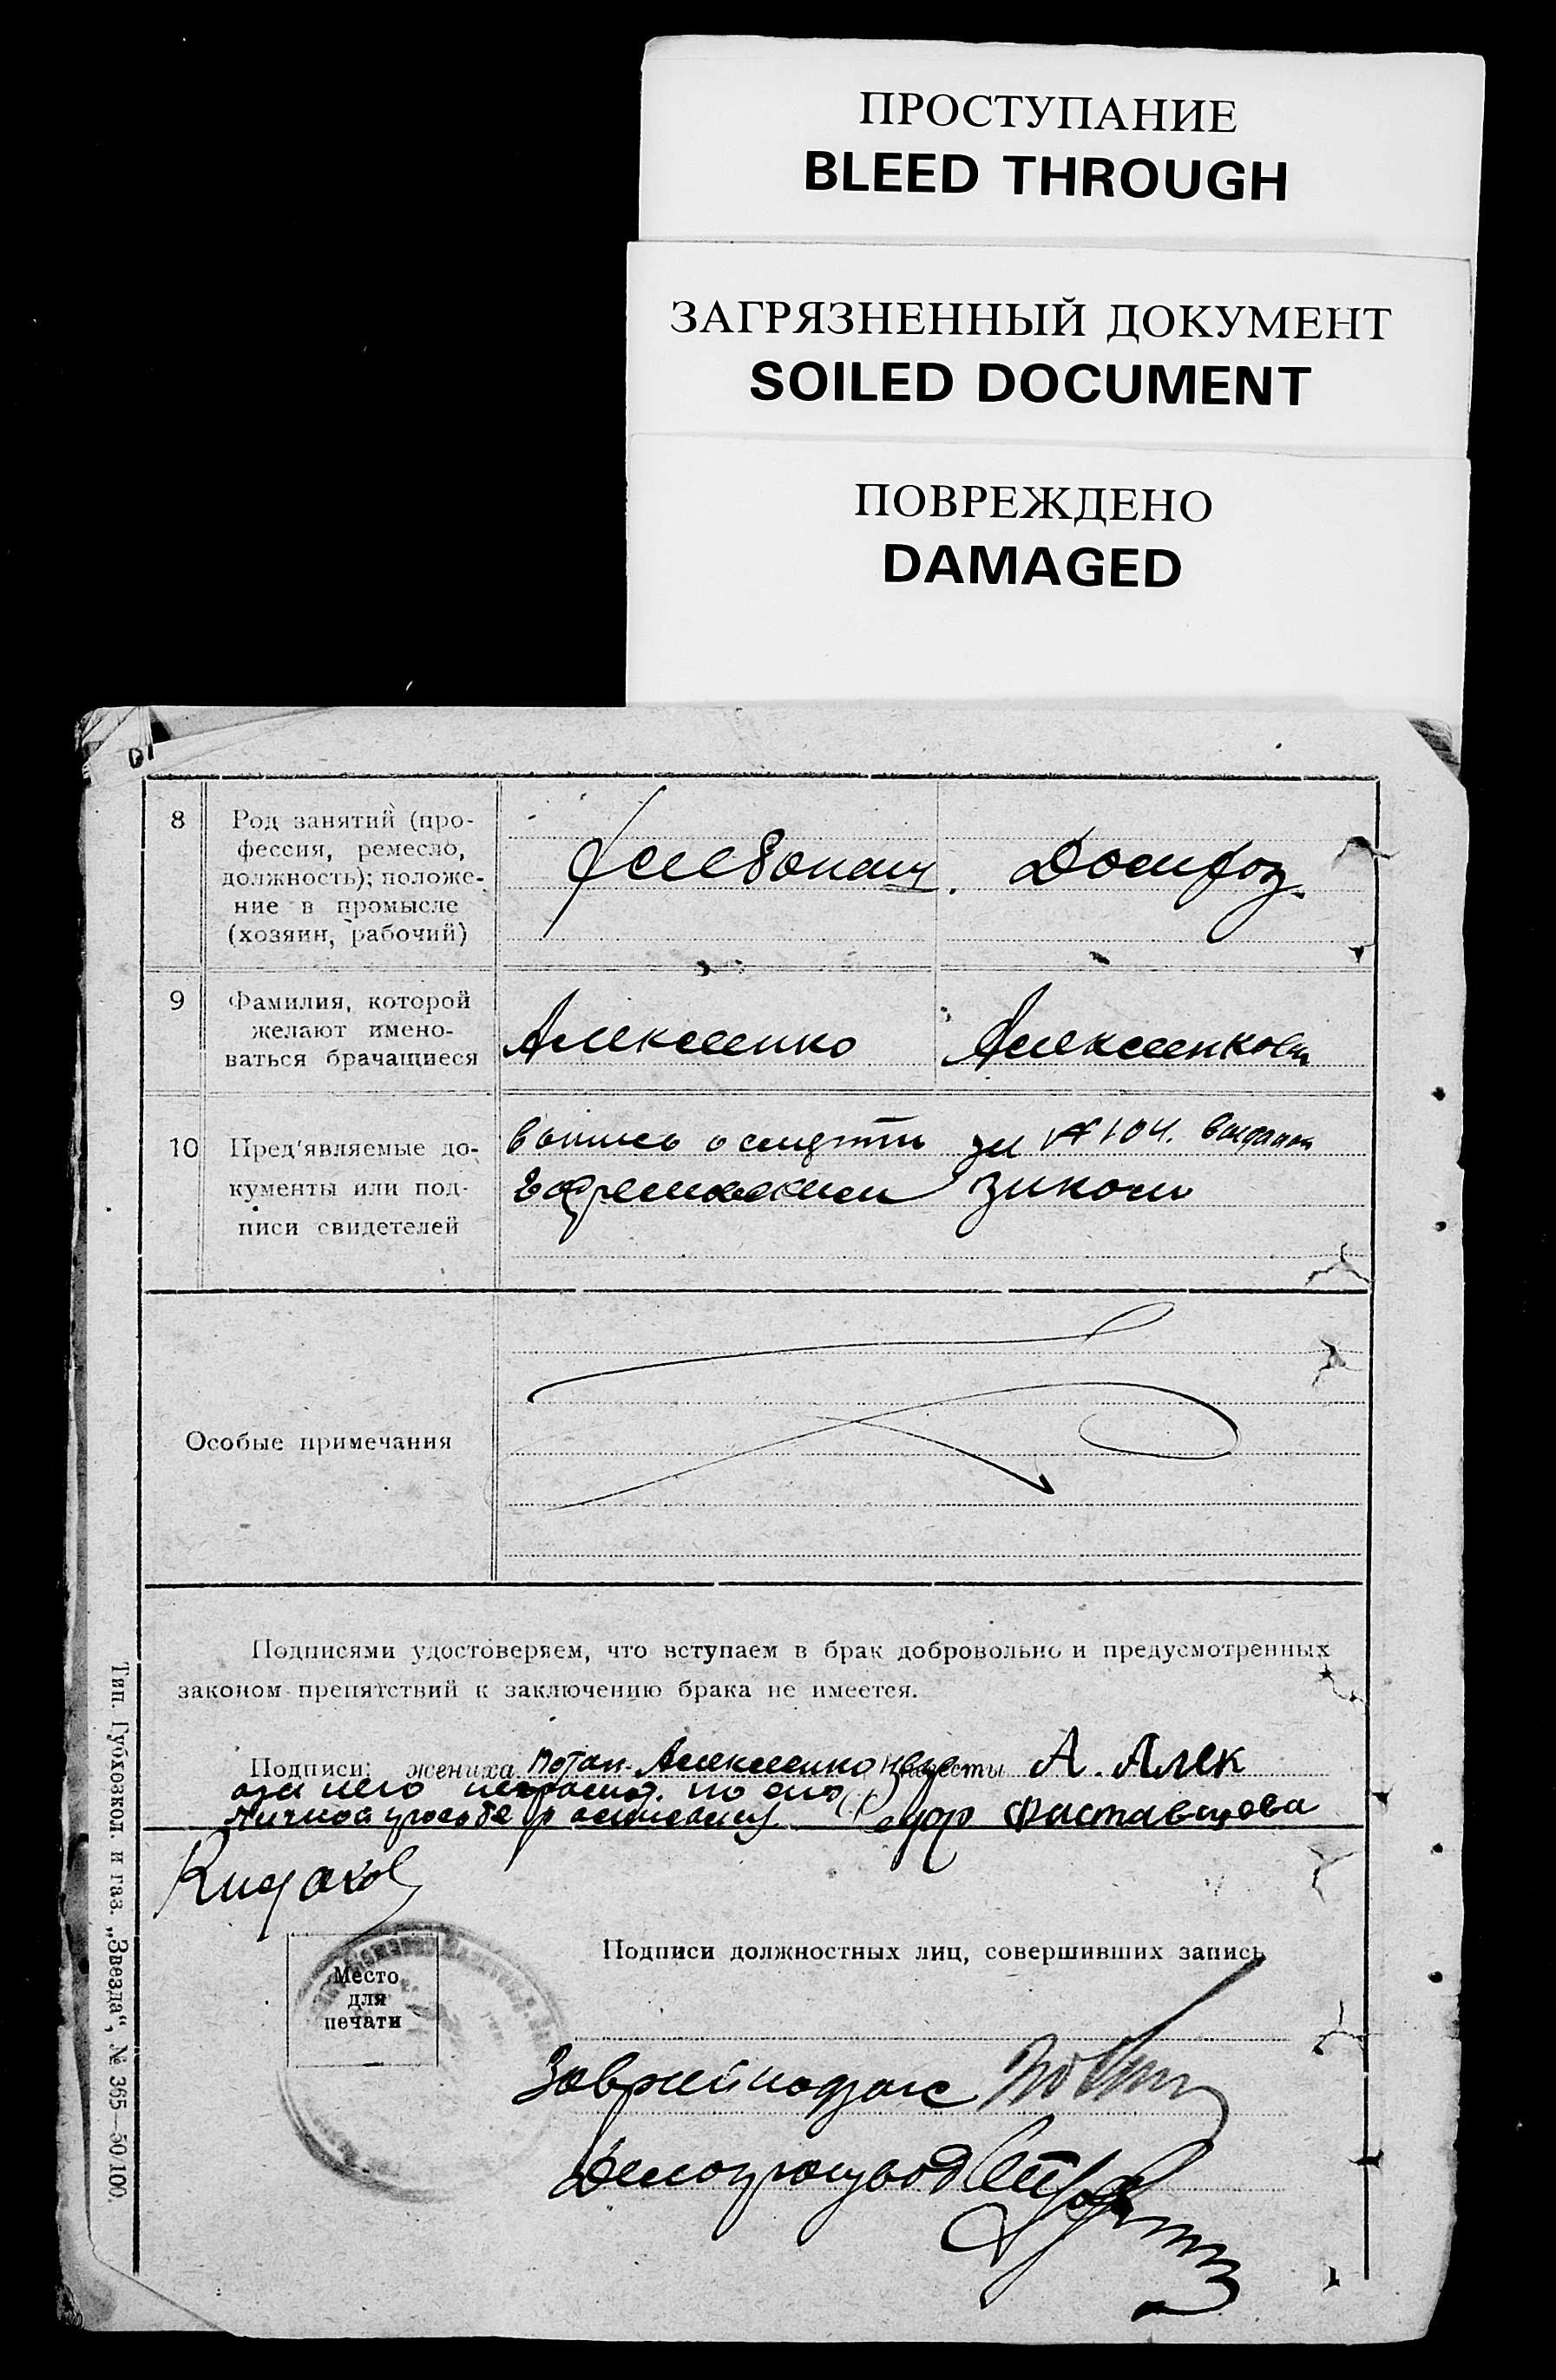 ПРОСТУПАНИЕ
BLEED THROUGH
ЗАГРЯЗНЕННЫЙ ДОКУМЕНТ
SOILED DOCUMENT
ПОВРЕЖДЕНО
DAMAGED
8
Род занятий (про-
фессия, ремесло,
должность); положе-
ние в промысле
(хозяин, рабочий)
Домхоз.
9
Фамилия, которой
желают имено-
ваться брачащиеся
Алексеенко
Алексеенкова
10
Пред'являемые до-
кументы или под-
писи свидетелей
о смерти за № 104.
Особые примечания
Подписями удостоверяем, что вступаем в брак добровольно и предусмотренных
законом препятствий к заключению брака не имеется.
Подписи: жениха Потап Алексеенко невесты А. Алек
за него по его
личной просьбе Федор
Место
для
печати
Подписи должностных лиц, совершивших запись
Делопроизвод
Тип. Губхозкол. и газ. „Звезда“, № 365—50/100.